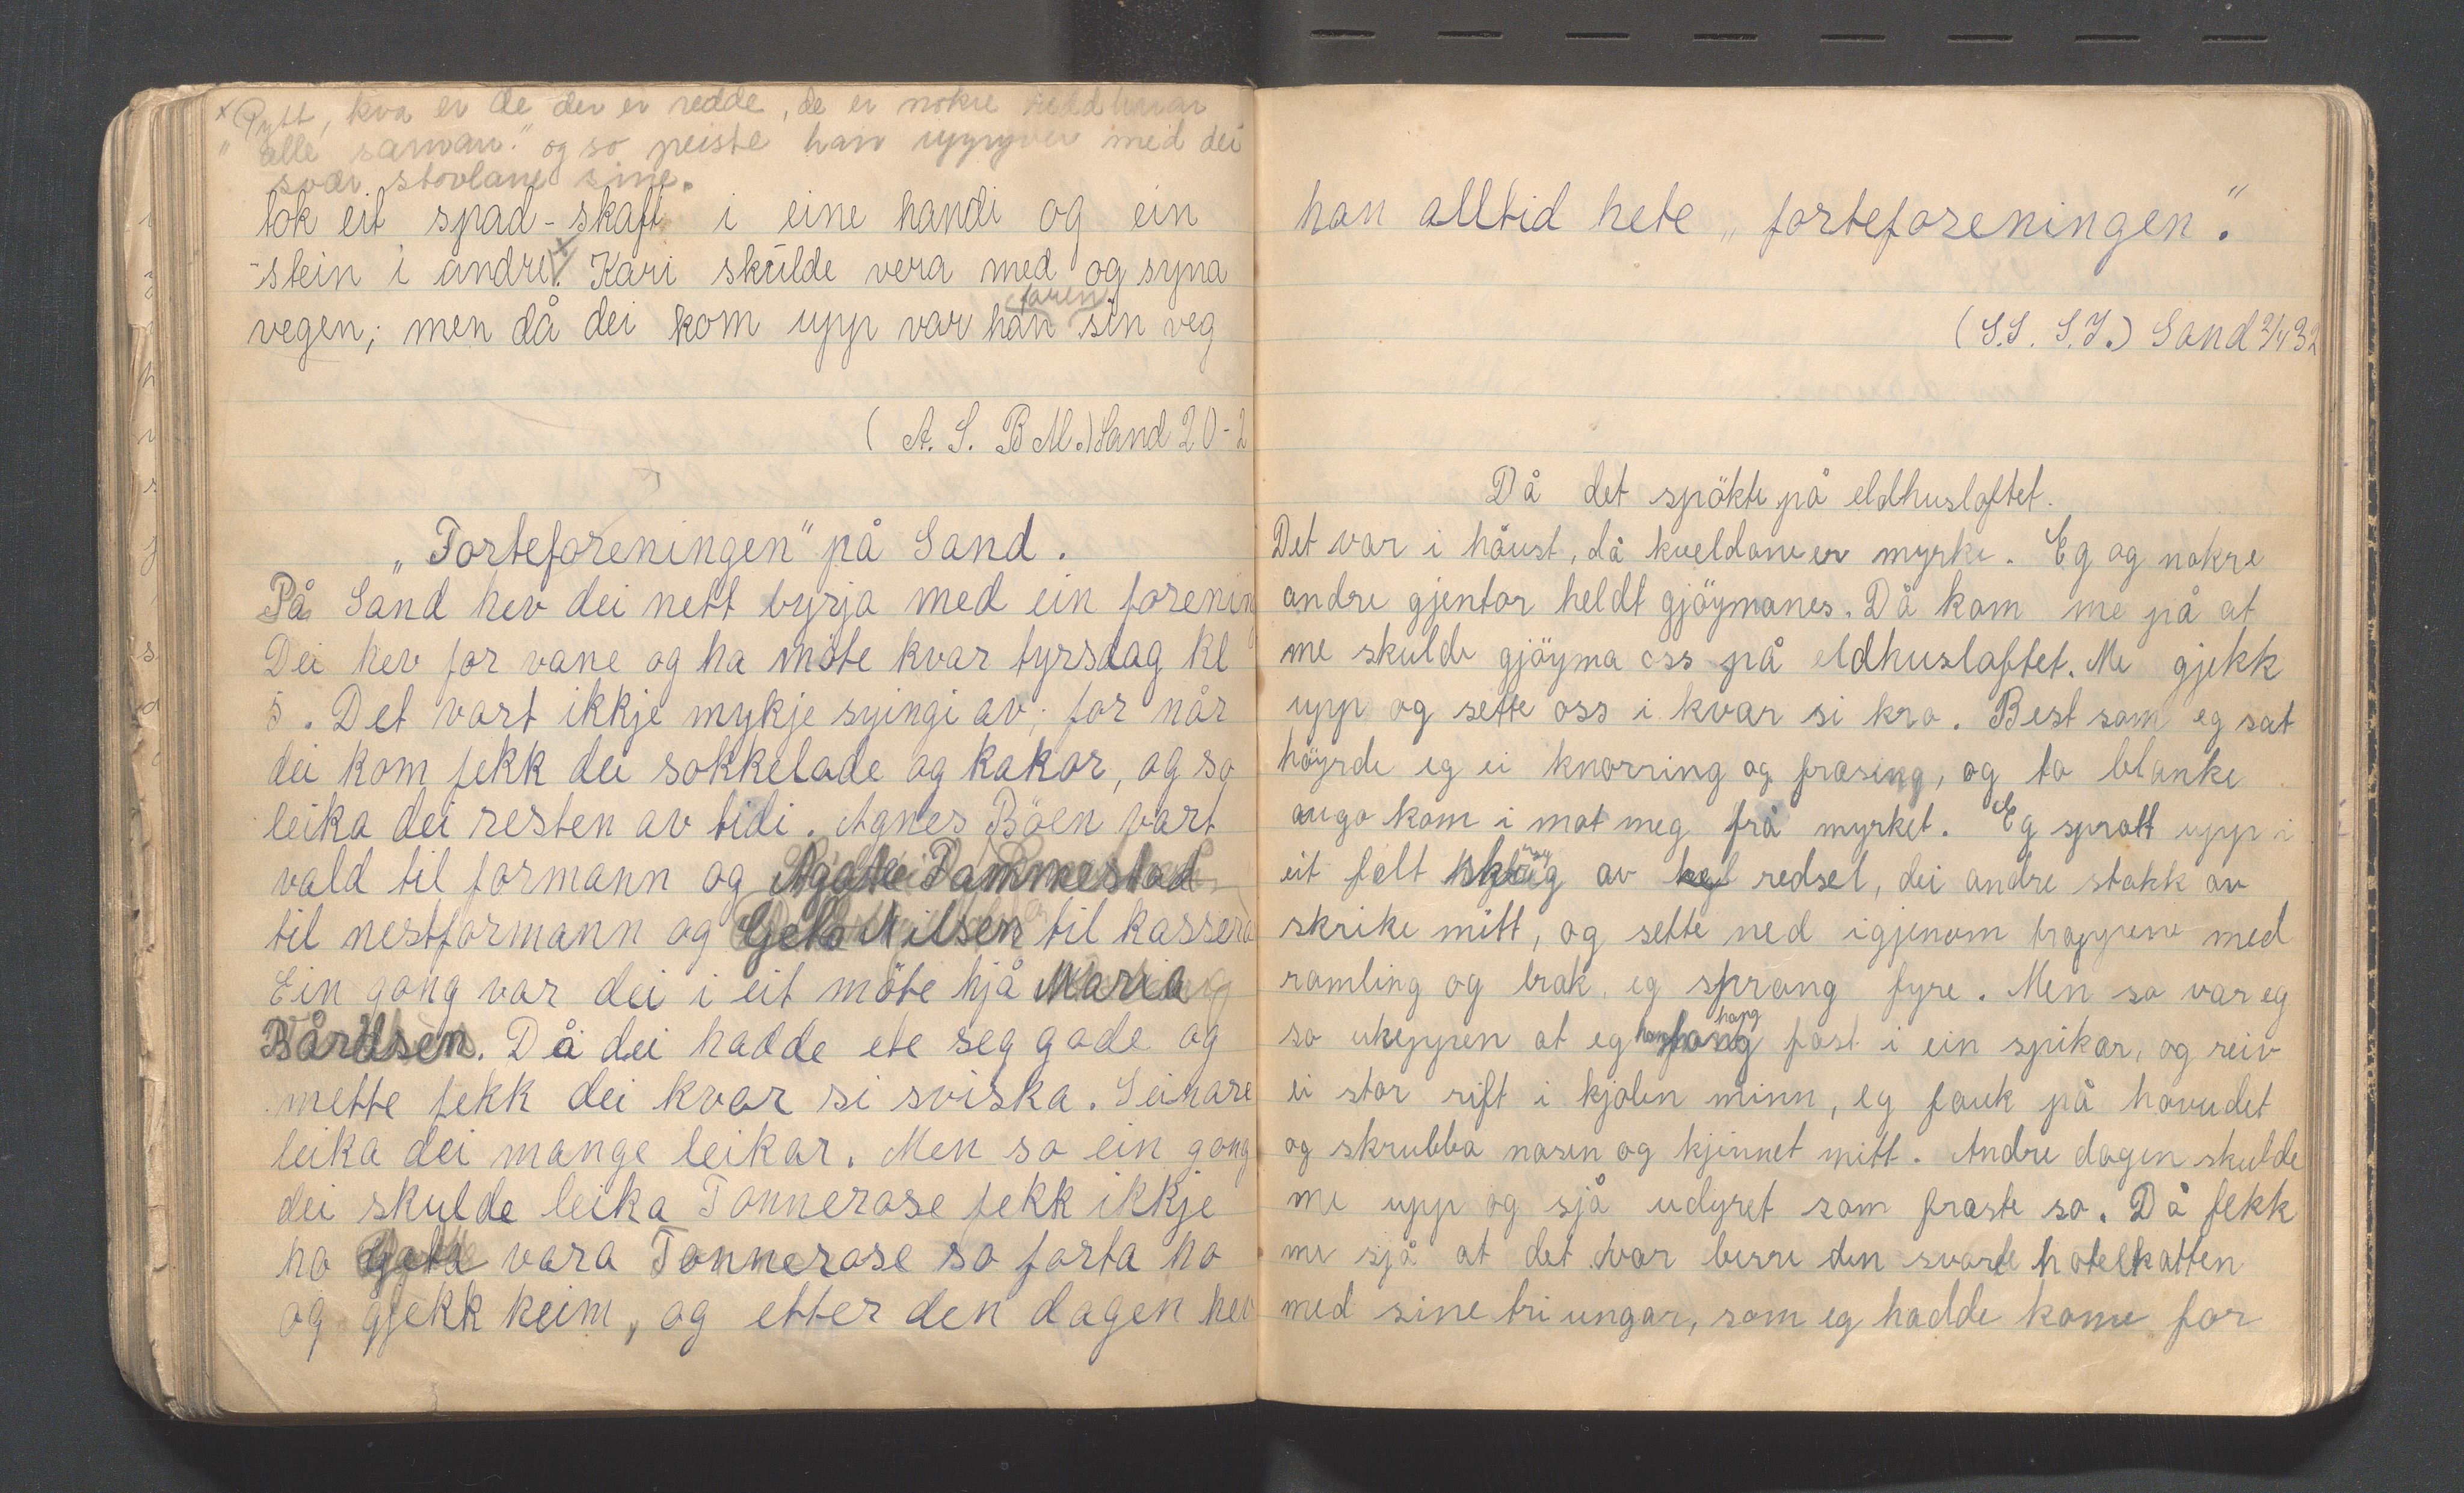 x Pytt, kva er de der er redde, de er nokre reddharar
" alle saman." og so peiste han uppyver med dei
svær stovlane sine.
tok eit spad-skaft i eine handi og ein
stein i andre x. Kari skulde vera med og syna
vegen; men då dei kom upp var han faren sin veg
(A. S. B M.) Sand 20-2
„Forteforeningen" på Sand.
På Sand hev dei nett byrja med ein forenin
Dei hev for vane og ha möte kvar tyrsdag kl
5. Det vart ikkje mykje syingi av; for når
dei kom fekk dei sokkelade og kakor, og so
leika dei resten av tidi. Agnes Böen vart
vald til formann og Agate Tammestad
til nestformann og Geto Nilsen til kassera
Ein gong var dei i eit möte hjå Maria
Bårdsen. Då dei hadde ete seg gode og
mette fekk dei kvar si sviska. Seinare
leika dei mange leikar. Men so ein gong
dei skulde leika Tonnerose fekk ikkje
ho Geto vara Tonnerose so forta ho
og gjekk heim, og etter den dagen hev
hon alltid hete „forteforeningen".
(S.S. S.I.) Sand 2/4 32
Då det spökte på eldhusloftet.
Det var i håust, då kveldane er myrke. Eg og nokre
andre gjentor heldt gjöymanes. Då kom me på at
me skulde gjöyma oss på eldhusloftet. Me gjekk
upp og sette oss i kvar si kro. Best som eg sat
höyrde eg ei knorring og frasing, og to blanke
augo kom i mot meg frå myrket. Eg spratt upp i
eit fælt av redsel, dei andre stakk av
skrike mitt, og sette ned igjenom trappene med
ramling og brak, eg sprang fyre. Men so var eg
so uheppen at eg hang fast i ein spikar, og reiv
ei stor rift i kjolen minn, eg fauk på hovudet
og skrubba nosen og kjinnet mitt. Andre dagen skulde
me upp og sjå udyret som fraste so. Då fekk
me sjå at det var berre den svarte hotelkatten
med sine tri ungar, som eg hadde kome for